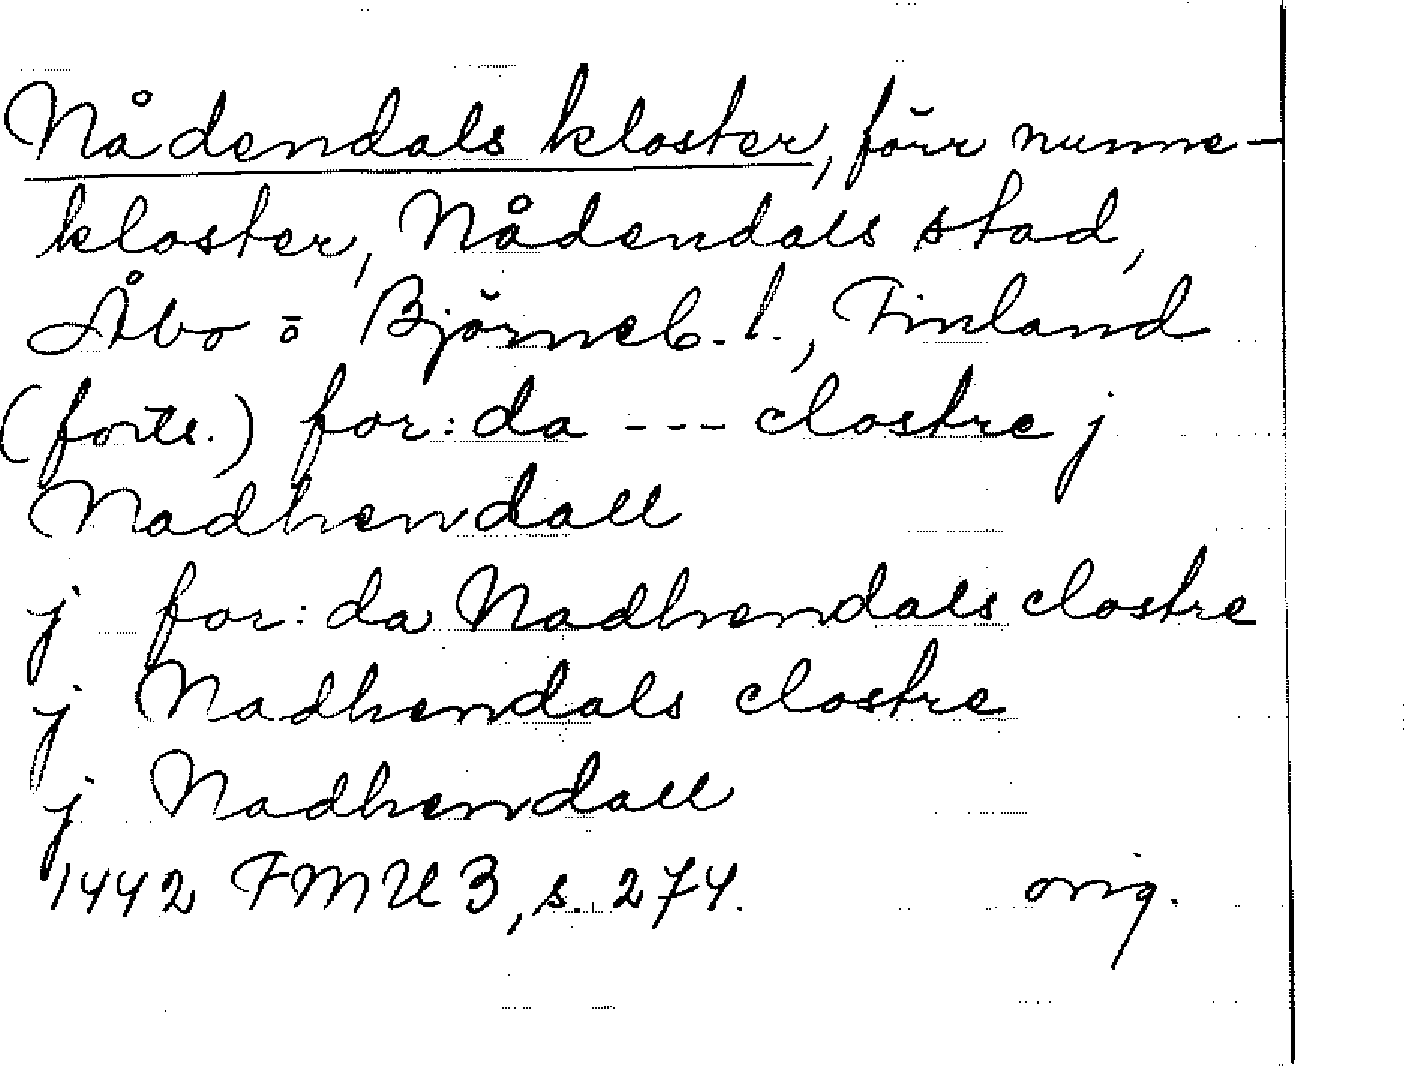 Nådendals kloster, förr nunne-
kloster, Nådendals stad,
Åbo o Björneb. l., Finland
(forts.) for:da --- clostre j
Nadhendall
j for:da Nadhendals clostre
j Nadhendals clostre
j Nadhendall
1442 FMU 3, s. 274. orig.